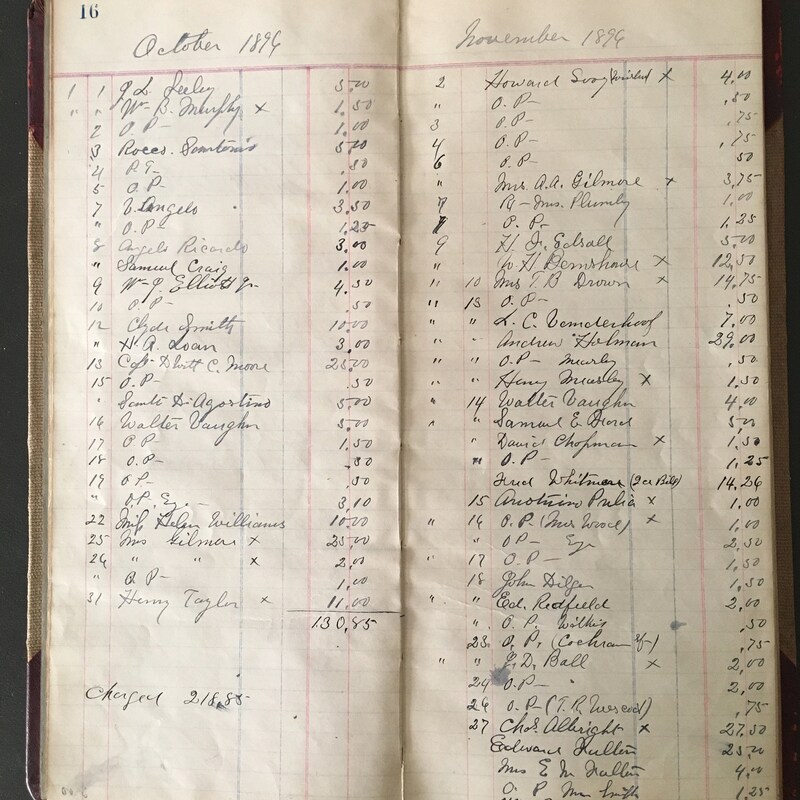 16
October 1896
1 1 J. L. Seeley 5.00
" " Wm B. Murphy x 1.50
2 O.P- 1.00
3 Rocco 5.00
4 .50
5 O.P- 1.00
7 Angelo 3.50
" O.P- 1.25
8 Angelo Ricardo 3.00
" Samuel Craig 1.00
9 Wm J. Elliott Jr 4.50
10 O.P- .50
12 Clyde Smith 10.00
" H. A. Loan 3.00
13 C. Moore 25.00
15 O.P- .50
" Santi Di Agostino 5.00
16 Walter Vaughn 5.00
17 O P- 1.50
18 O.P- .50
19 O P- .50
" O.P. Eye- 3.10
22 Miss Helen Williams 10.00
25 Mrs Gilmore x 25.00
26 " " x 2.00
" O. P- 1.00
31 Henry Taylor x 11.00
130.85
Charged 218.85
November 1896
2 Howard x 4.00
" O. P- .50
3 O. P- .75
4 O. P- .75
6 O. P- 50
" Mrs. A.A. Gilmore x 3.75
7 Mrs. Plumly 1.00
7 O. P.- 1.25
9 H. F. Edsall 5.00
" x 12.50
" 10 Mrs T. B Drown x 14.75
" 13 O. P- .50
" " L. C. Vanderhoof 7.00
" Andrew Holman 29.00
" " O.P- Mearly .50
" " Henry x 1.50
14 Walter Vaughn 4.00
" Samuel E. 5.00
David Chapman x 1.50
" O. P- 1.25
Fred Whitmore 14.26
15 x 1.00
" 16 O. P. (Mrs Wood) x 1.00
" O P- Eye 2.50
" 17 O. P- 1.50
18 John Dilger 1.50
" " Ed. Redfield 2.00
" O. P. Wilkis .50
23 O. P. (Cochran) .75
" " J. D. Ball x 2.00
24 O. P- 2.00
26 O. P- .75
27 Chas. Albright x 27.50
Edward 25.00
Mrs E. M. 4.00
O. P. Mrs Smith 1.25